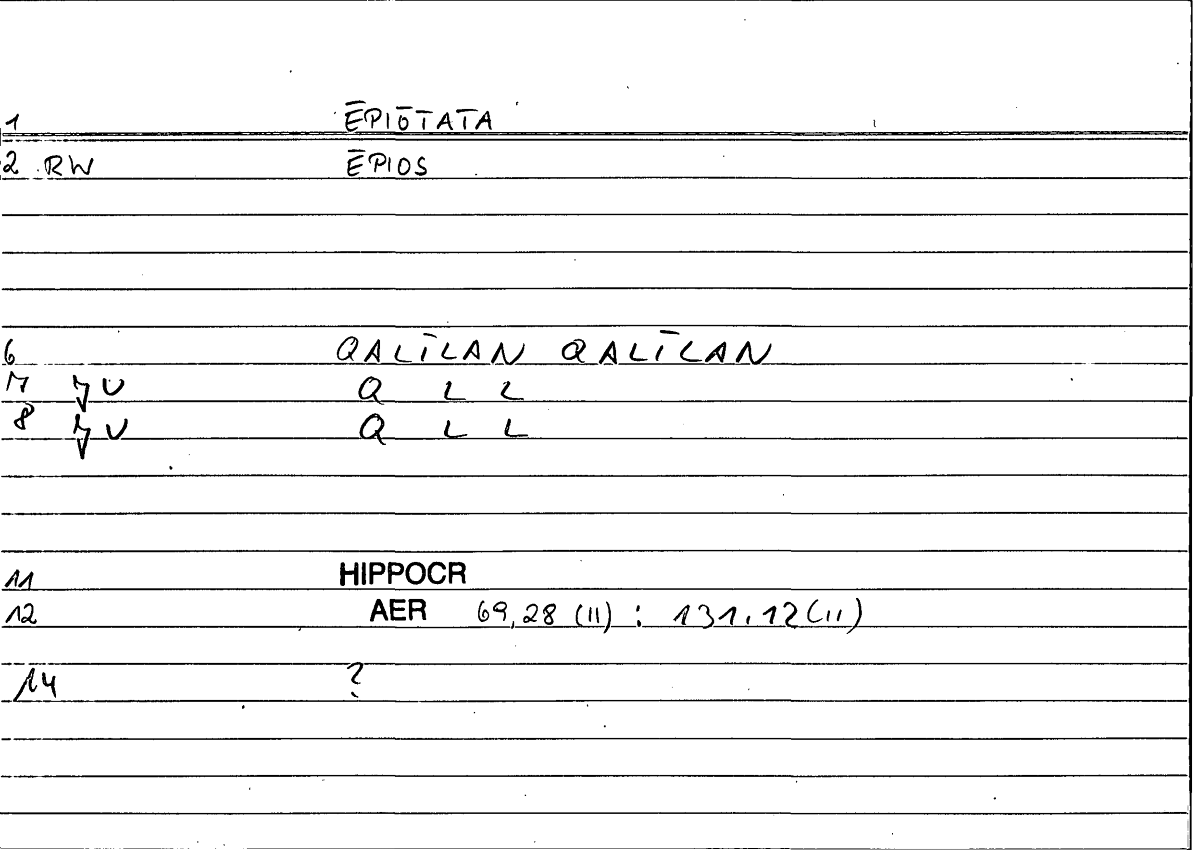 1 ĒPIŌTATA
2 RW ĒPIOS
6 QALĪLAN QALĪLAN
7 U Q L L
8 U Q L L
11 HIPPOCR
12 AER 69,28 (11) : 131.12 (11)
14 ?